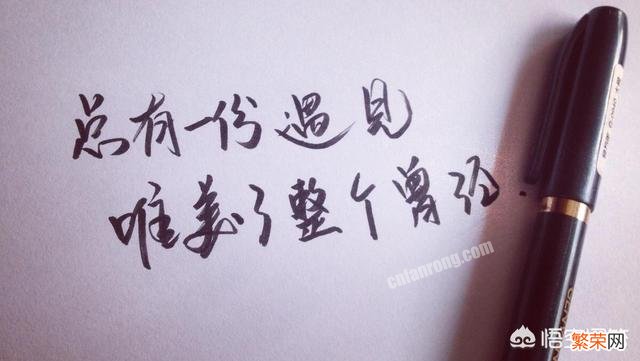 总有一份遇见
唯美了整个曾经.
cnfanrong.com
悟空问答
繁荣网